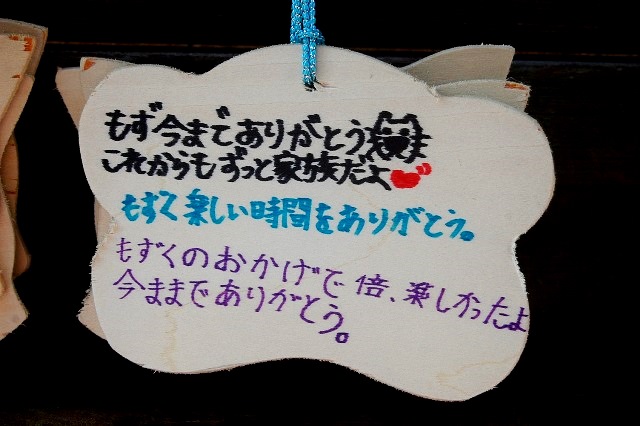 もず今までありがとう
これからもずっと家族だよ
もずく楽しい時間をありがとう。
もずくのおかげで倍、楽しかったよ
今ままでありがとう。